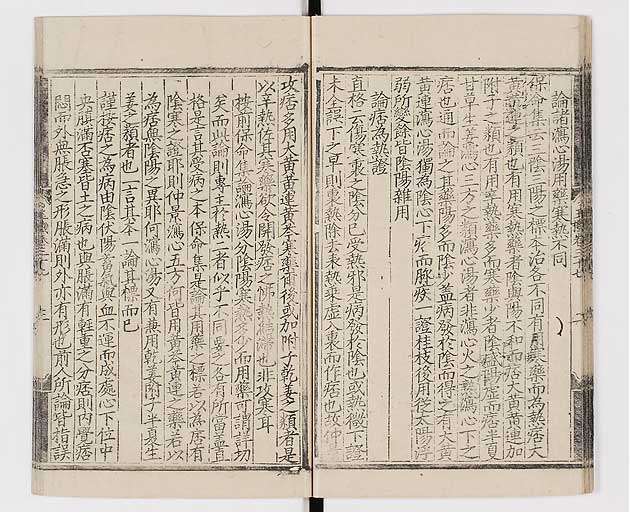 論諸瀉心湯用藥寒熱不同
保命集云三陰三陽之標本治各不同有用寒藥而為熱痞大
黃黃連之類也有用寒熱藥者陰與陽不和而痞大黃黃連加
附子之類也有用辛熱藥多而寒藥少者陰盛陽虛而痞半夏
甘草生姜瀉心三方之類瀉心湯者非瀉心火之熱瀉心下之
痞也通而論之其藥陽多而陰少蓋病發於陰而得之有大黃
黃連瀉心湯獨為陰心下痞而脉疾一證桂枝後用從太陽浮
弱所變餘皆陰陽雜用
論痞為熱證
直格云傷寒裏之陰分已受熱邪是病發於陰也或熱微下證
未全誤下之早則裏熱除去表熱乘虛入裏而作痞也故仲景
攻痞多用大黃黃連黃芩寒藥爾後或加附子乾姜之類者是
以辛熱佐其寒藥欲令開發痞之怫熱結滯也非攻寒耳
按前保命集論瀉心湯分陰陽寒熱多少而用藥可謂詳切
矣而此論則專主於熱二者似乎不同要之各有所當蓋直
格是言其受病之本保命集是論其用藥之標若以為痞有
陰寒之證耶則仲景瀉心五方何皆用黃芩黃連之藥若以
為痞無陰陽之異耶何瀉心湯又有兼用乾姜附子半夏生
姜之類者也一言其本一論其標而已
謹按痞之為病由陰伏陽蓄氣與血不運而成處心下位中
央䐜滿否塞皆土之病也與脹滿有輕重之分痞則內覺痞
悶而外無脹急之形脹滿則外亦有形也前人所論皆指誤